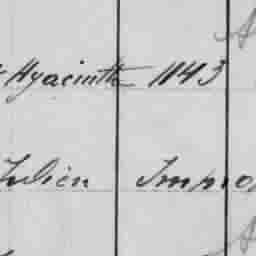 Hyacinth 1143
Julien Impro